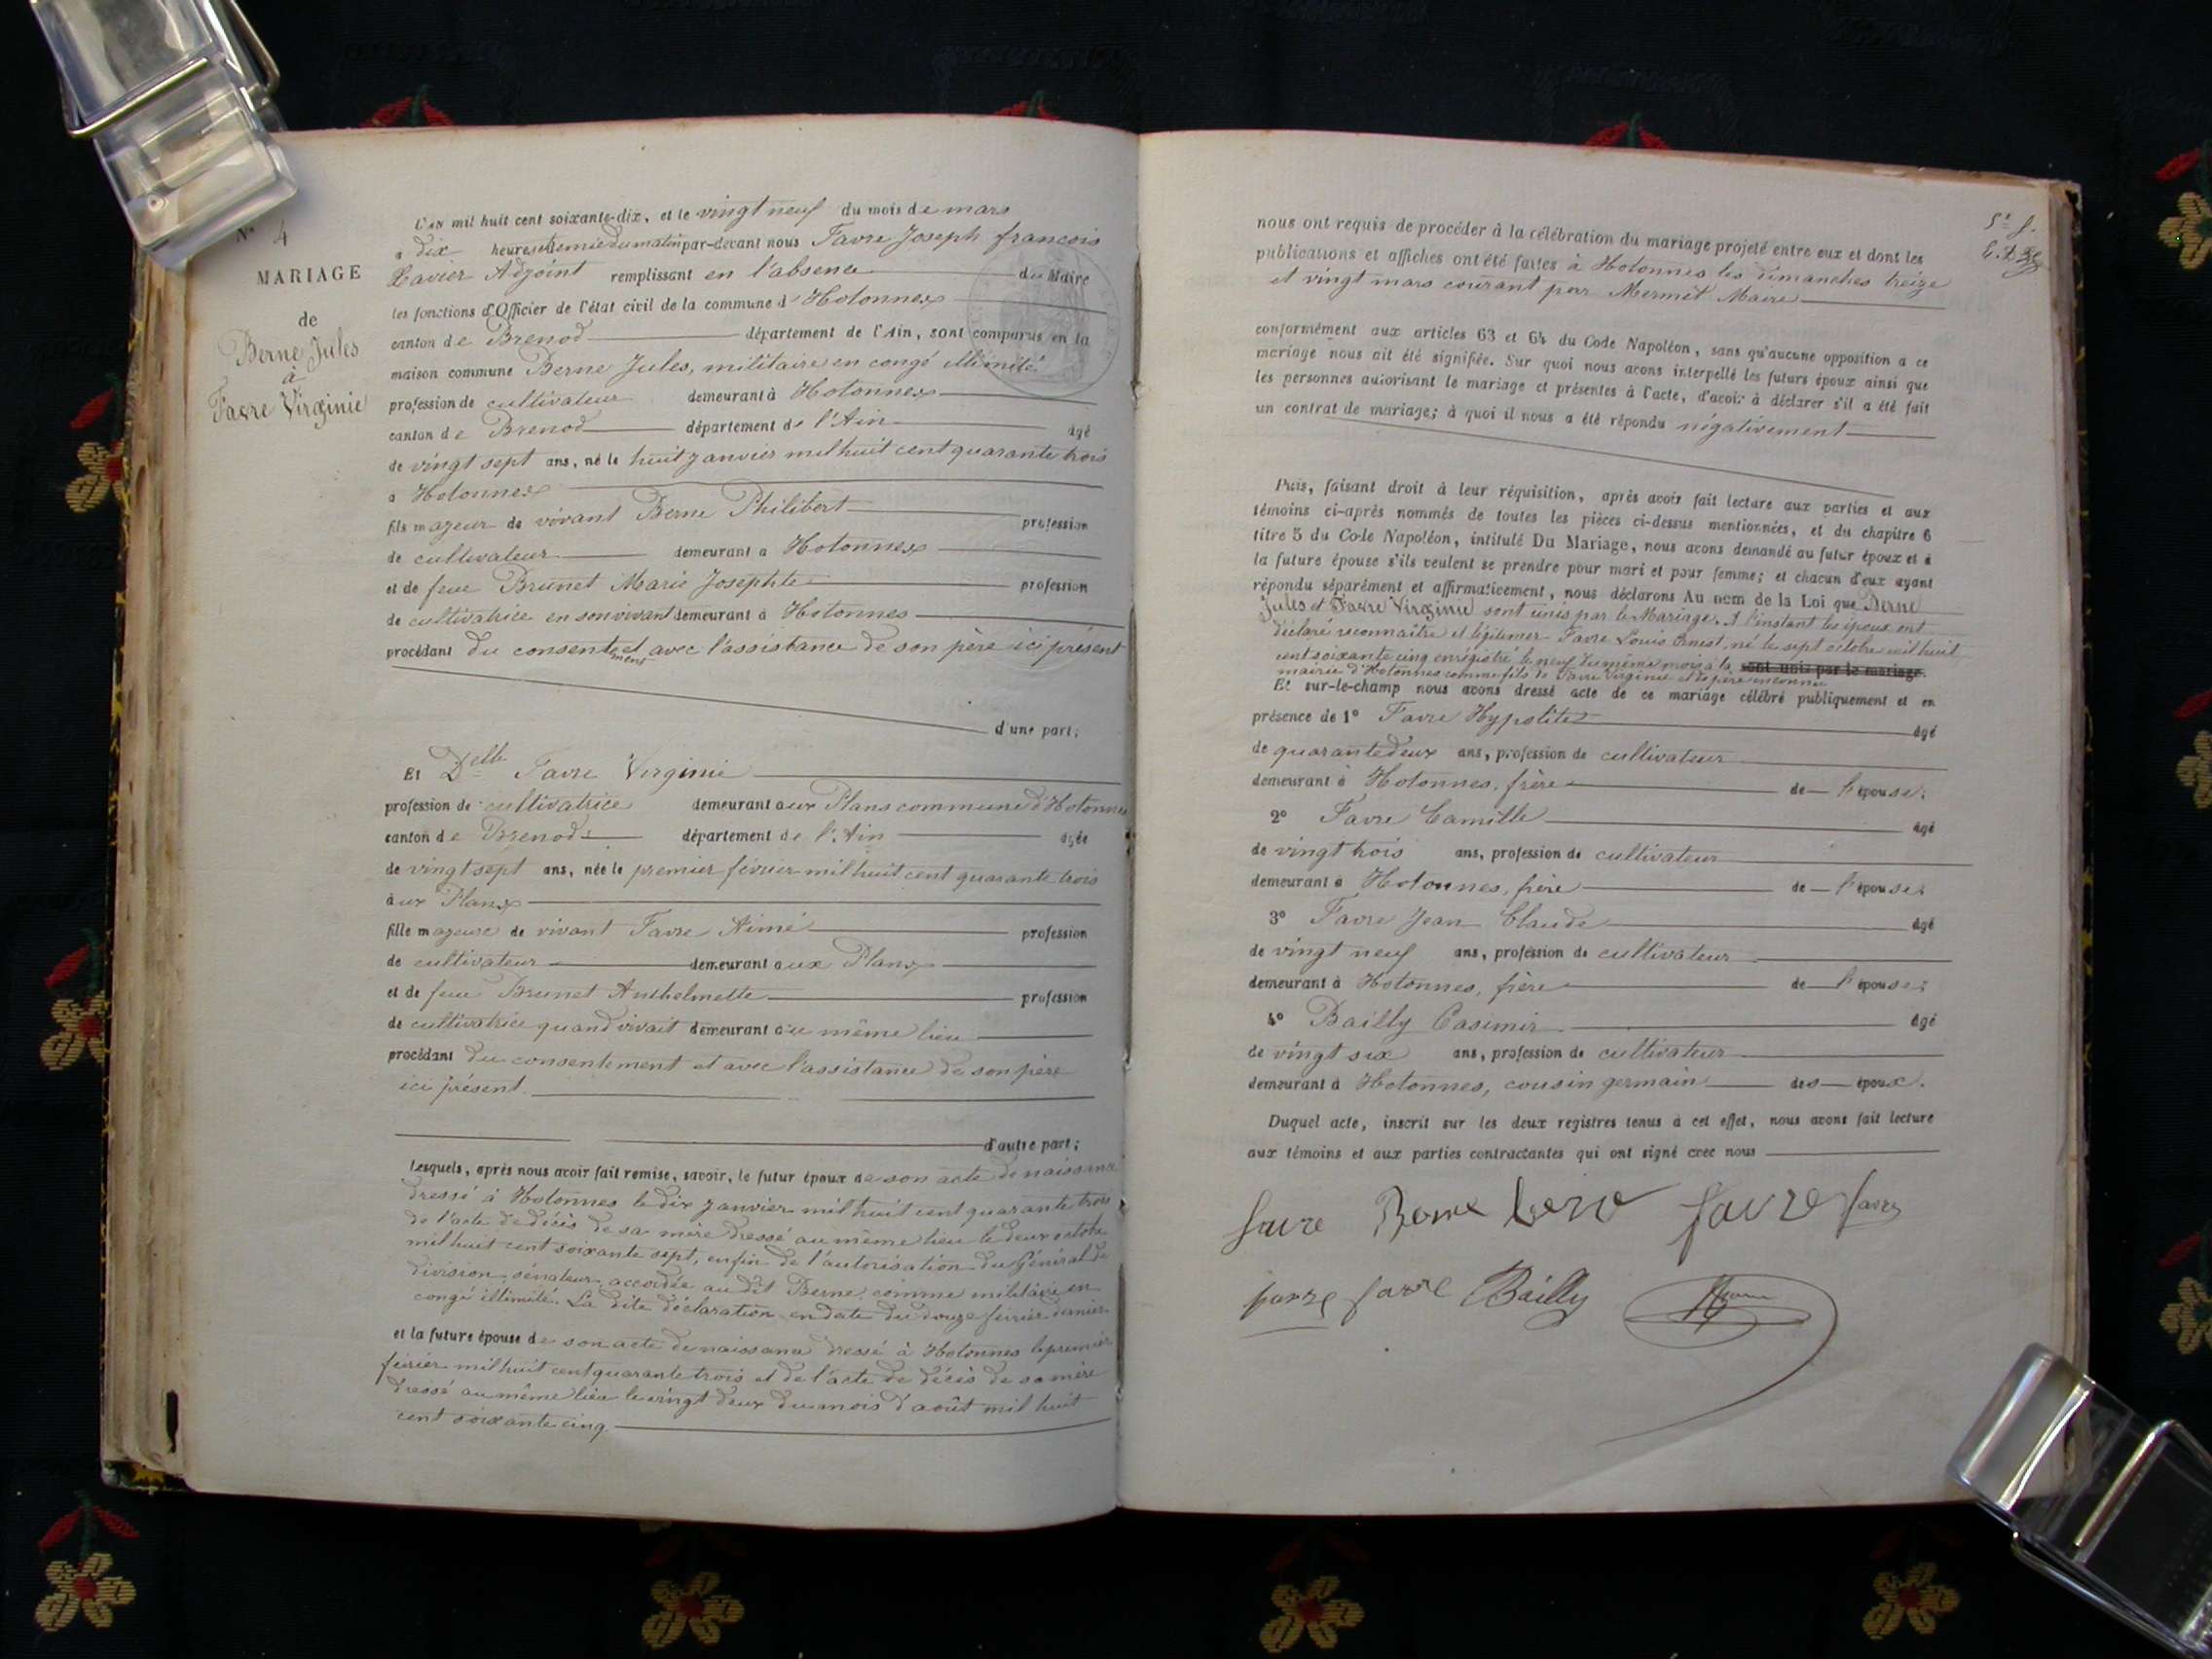 N° 4
MARIAGE
de
Berne Jules
à
Favre Virginie
L'AN mil huit cent soixante-dix, et le vingt neuf du mois de mars
à dix heures et demie du matin par-devant nous Favre Joseph françois
Xavier Adjoint remplissant en l'absence du Maire
les fonctions d'Officier de l'état civil de la commune d'Hotonnes
canton de Brenod département de l'Ain, sont comparus en la
maison commune Berne Jules, militaire en congé illimité
profession de cultivateur demeurant à Hotonnes
canton de Brenod département de l'Ain âgé
de vingt sept ans, né le huit janvier mil huit cent quarante trois
à Hotonnes
fils majeur de vivant Berne Philibert profession
de cultivateur demeurant à Hotonnes
et de feue Brunet Marie Josephte profession
de cultivatrice en son vivant demeurant à Hotonnes
procédant du consentement et avec l'assistance de son père ici présent
d'une part;
Et Delle Favre Virginie
profession de cultivatrice demeurant aux Plans commune d'Hotonnes
canton de Brenod département de l'Ain âgée
de vingt sept ans, née le premier février mil huit cent quarante trois
aux Plans
fille majeure de vivant Favre Aimé profession
de cultivateur demeurant aux Plans
et de feue Brunet Anthelmette profession
de cultivatrice quand vivait demeurant au même lieu
procédant du consentement et avec l'assistance de son père
ici présent.
d'autre part;
Lesquels, après nous avoir fait remise, savoir, le futur époux de son acte de naissance
dressé à Hotonnes le dix janvier mil huit cent quarante trois
de l'acte de décès de sa mère dressé au même lieu le deux octobre
mil huit cent soixante sept, enfin de l'autorisation du Général de
division, sénateur, accordée au dit Berne, comme militaire en
congé illimité. La dite déclaration en date du douze février dernier
et la future épouse de son acte de naissance dressé à Hotonnes le premier
février mil huit cent quarante trois et de l'acte de décès de sa mère
dressé au même lieu le vingt deux du mois d'août mil huit
cent soixante cinq
nous ont requis de procéder à la célébration du mariage projeté entre eux et dont les
publications et affiches ont été faites à Hotonnes les dimanches treize
et vingt mars courant par Mermet Maire
conformément aux articles 63 et 64 du Code Napoléon, sans qu'aucune opposition a ce
mariage nous ait été signifiée. Sur quoi nous avons interpellé les futurs époux ainsi que
les personnes autorisant le mariage et présentes à l'acte, d'avoir à déclarer s'il a été fait
un contrat de mariage; à quoi il nous a été répondu négativement
Puis, faisant droit à leur réquisition, après avoir fait lecture aux parties et aux
témoins ci-après nommés de toutes les pièces ci-dessus mentionnées, et du chapitre 6
titre 5 du Code Napoléon, intitulé Du Mariage, nous avons demandé au futur époux et à
la future épouse s'ils veulent se prendre pour mari et pour femme; et chacun d'eux ayant
répondu séparément et affirmativement, nous déclarons Au nom de la Loi que Berne
Jules et Favre Virginie sont unis par le Mariage. A l'instant les époux ont
déclaré reconnaître et légitimer Favre Louis Ernest, né le sept octobre mil huit
cent soixante cinq enrégistré le neuf du même mois à la sont unis par le mariage.
mairie d'Hotonnes comme fils de Favre Virginie et de père inconnu
Et sur-le-champ nous avons dressé acte de ce mariage célébré publiquement et en
présence de 1° Favre Hypolite âgé
de quarante deux ans, profession de cultivateur
demeurant à Hotonnes, frère de l'épouse;
2° Favre Camille âgé
de vingt trois ans, profession de cultivateur
demeurant à Hotonnes, frère de l'épouse;
3° Favre Jean Claude âgé
de vingt neuf ans, profession de cultivateur
demeurant à Hotonnes, frère de l'épouse;
4° Bailly Casimir âgé
de vingt six ans, profession de cultivateur
demeurant à Hotonnes, cousin germain des époux.
Duquel acte, inscrit sur les deux registres tenus à cet effet, nous avons fait lecture
aux témoins et aux parties contractantes qui ont signé avec nous
favre Berne favre favre
favre favre Bailly